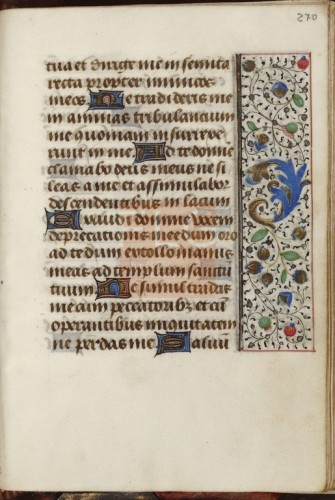 270
tua et dirige me in semita
recta propter inimicos
meos Ne tradideris me
in animas tribulantium
me quoniam insurrexe
runt in me Ad te domine
clamabo deus meus ne si
leas a me et assimilabor
descendentibus in lacum
Exaudi domine vocem
deprecationis mee dum oro
ad te dum extollo manus
meas ad templum sanctu
tuum Ne simul tradas
me cum peccatoribz et cū
operantibus iniquitatem
ne perdas me Qui